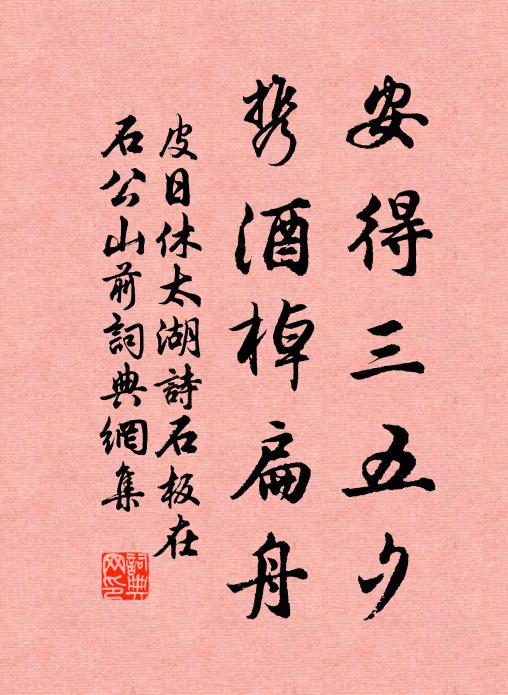 安得三五夕
携酒棹扁舟
皮日休太湖詩石板在
石公山前詞典網集
詞典
网印